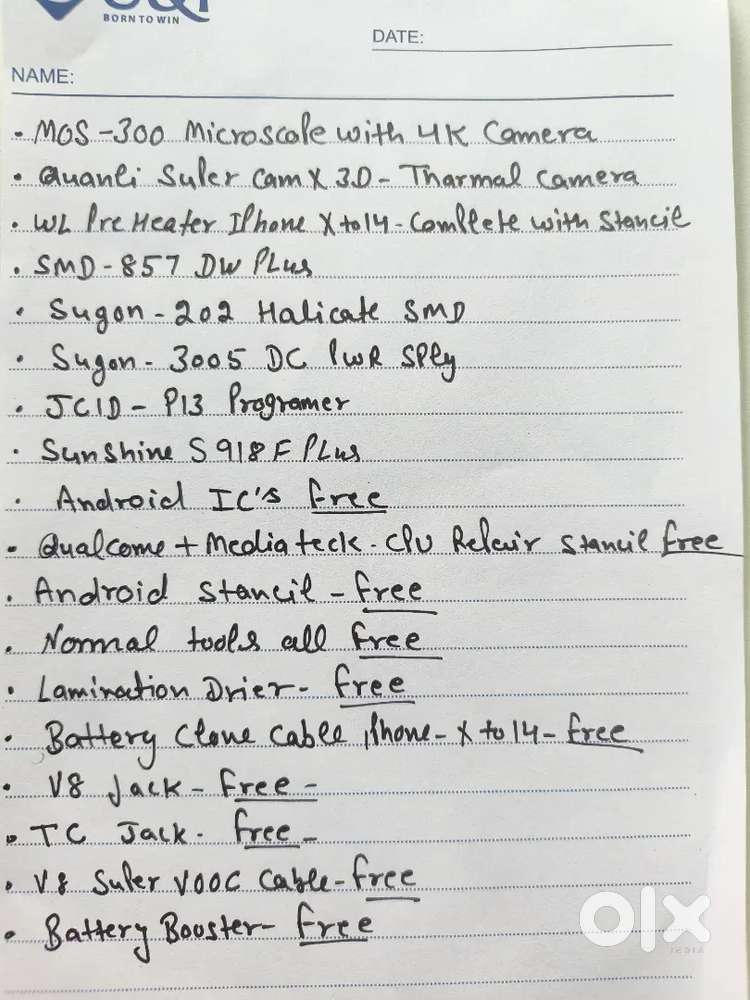 BORN TO WIN
DATE:
NAME:
• MOS-300 Microscope with 4K Camera
• Quanli Super Cam X 3D - Tharmal Camera
• WL Pre Heater IPhone X to 14 - Complete with Stancil
• SMD-857 DW Plus
• Sugon-202 Halicate SMD
• Sugon-3005 DC PWR SPly
• JCID-P13 Programer
• Sunshine S 918 F Plus
• Android IC's free
• Qualcome + Mediateck - CPU Repair Stancil free
• Android Stancil - free
• Normal tools all free
• Lamination Drier - free
• Battery Clone Cable iPhone - X to 14 - free
• V8 Jack - free -
• TC Jack - free -
• V8 Super VOOC Cable - free
• Battery Booster - free
olx